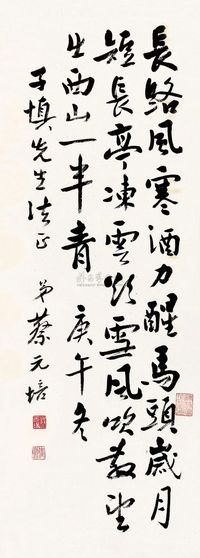 長路風寒酒力醒馬頭歲月
短長亭凍雲欲雪風吹散望
出西山一半青 庚午冬
子慎先生法正
弟蔡元培